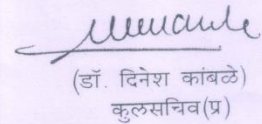 (डॉ. दिनेश कांबळे)
कुलसचिव(प्र)